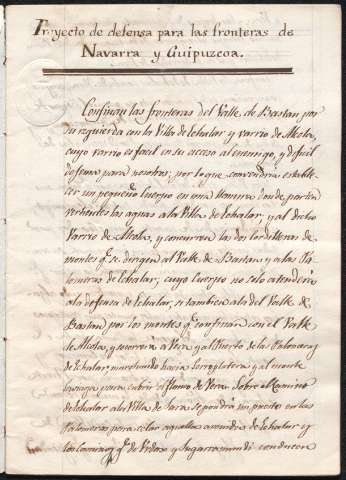 Proyecto de defensa para las fronteras de
Navarra y Guipuzcoa.
Confinan las fronteras del Valle de Bastan por
su izquierda con la Villa de Echalar y varrio de Alcola,
cuyo varrio es facil en su acceso al enemigo, y dificil
defensa para nosotros; por lo que convendria estable
cer un pequeño Cuerpo en una llanura donde parten
vertientes las aguas a la Villa de Echalar, y al dicho
Varrio de Alcola, y concurren las dos cordilleras de
montes qe. se dirigen al Valle de Bastan y a las Pa
lomeras de Echalar; cuyo Cuerpo no solo atenderá
a la defensa de Echalar, si tambien a la del Valle de
Bastan por los montes qe. confinan con el Valle
de Alcola, y socorrera a Vera y al Puerto de las Palomeras
de Echalar, marchando hacia y al monte
para cubrir el flanco de Vera. Sobre el Camino
de Echalar a la Villa de Sara se pondrá un puesto en las
Palomeras para celar aquella avenida de Echalar y
los Caminos qe. de Urdax y Sugarramurdi conducen